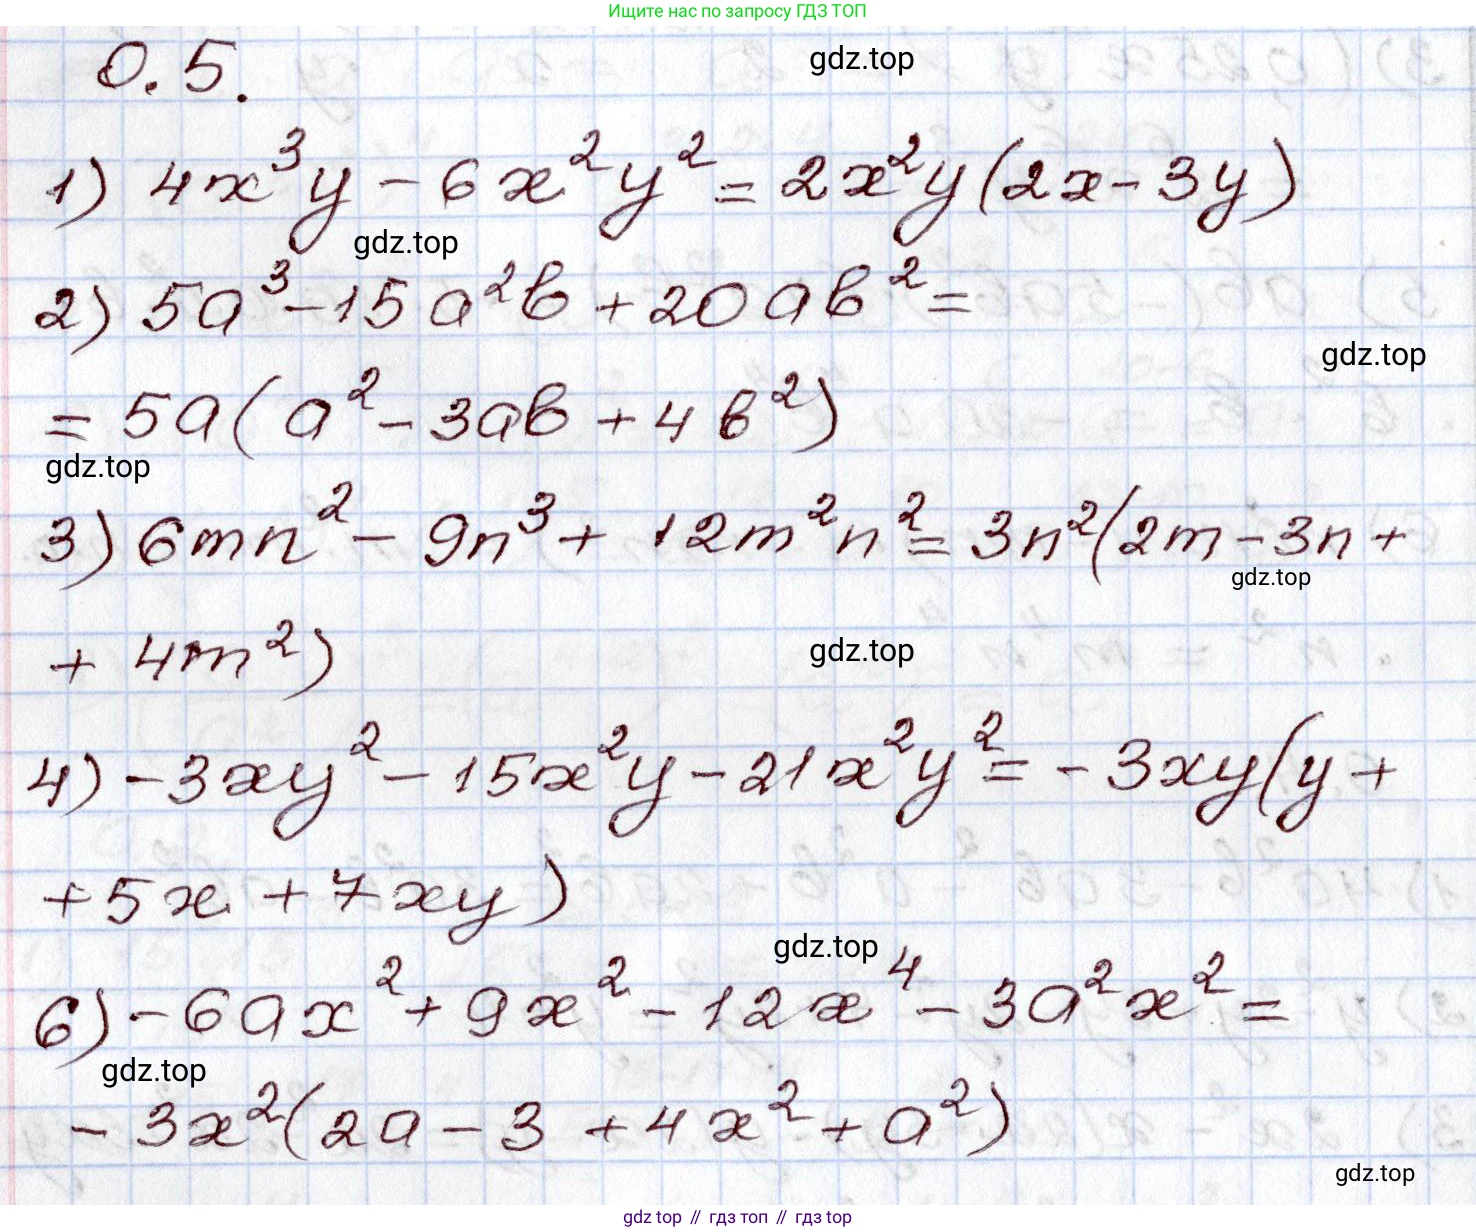 Ищите нас по запросу ГДЗ ТОП
0.5.
gdz.top
1) 4x³y - 6x²y² = 2x²y(2x - 3y)
gdz.top
2) 5a³ - 15a²b + 20ab² =
gdz.top
= 5a(a² - 3ab + 4b²)
gdz.top
3) 6mn² - 9n³ + 12m²n² = 3n²(2m - 3n +
gdz.top
+ 4m²)
gdz.top
4) -3xy² - 15x²y - 21x²y² = -3xy(y +
+ 5x + 7xy)
gdz.top
6) -6ax² + 9x² - 12x⁴ - 3a²x² =
gdz.top
- 3x²(2a - 3 + 4x² + a²)
gdz.top
gdz top // гдз топ // gdz top